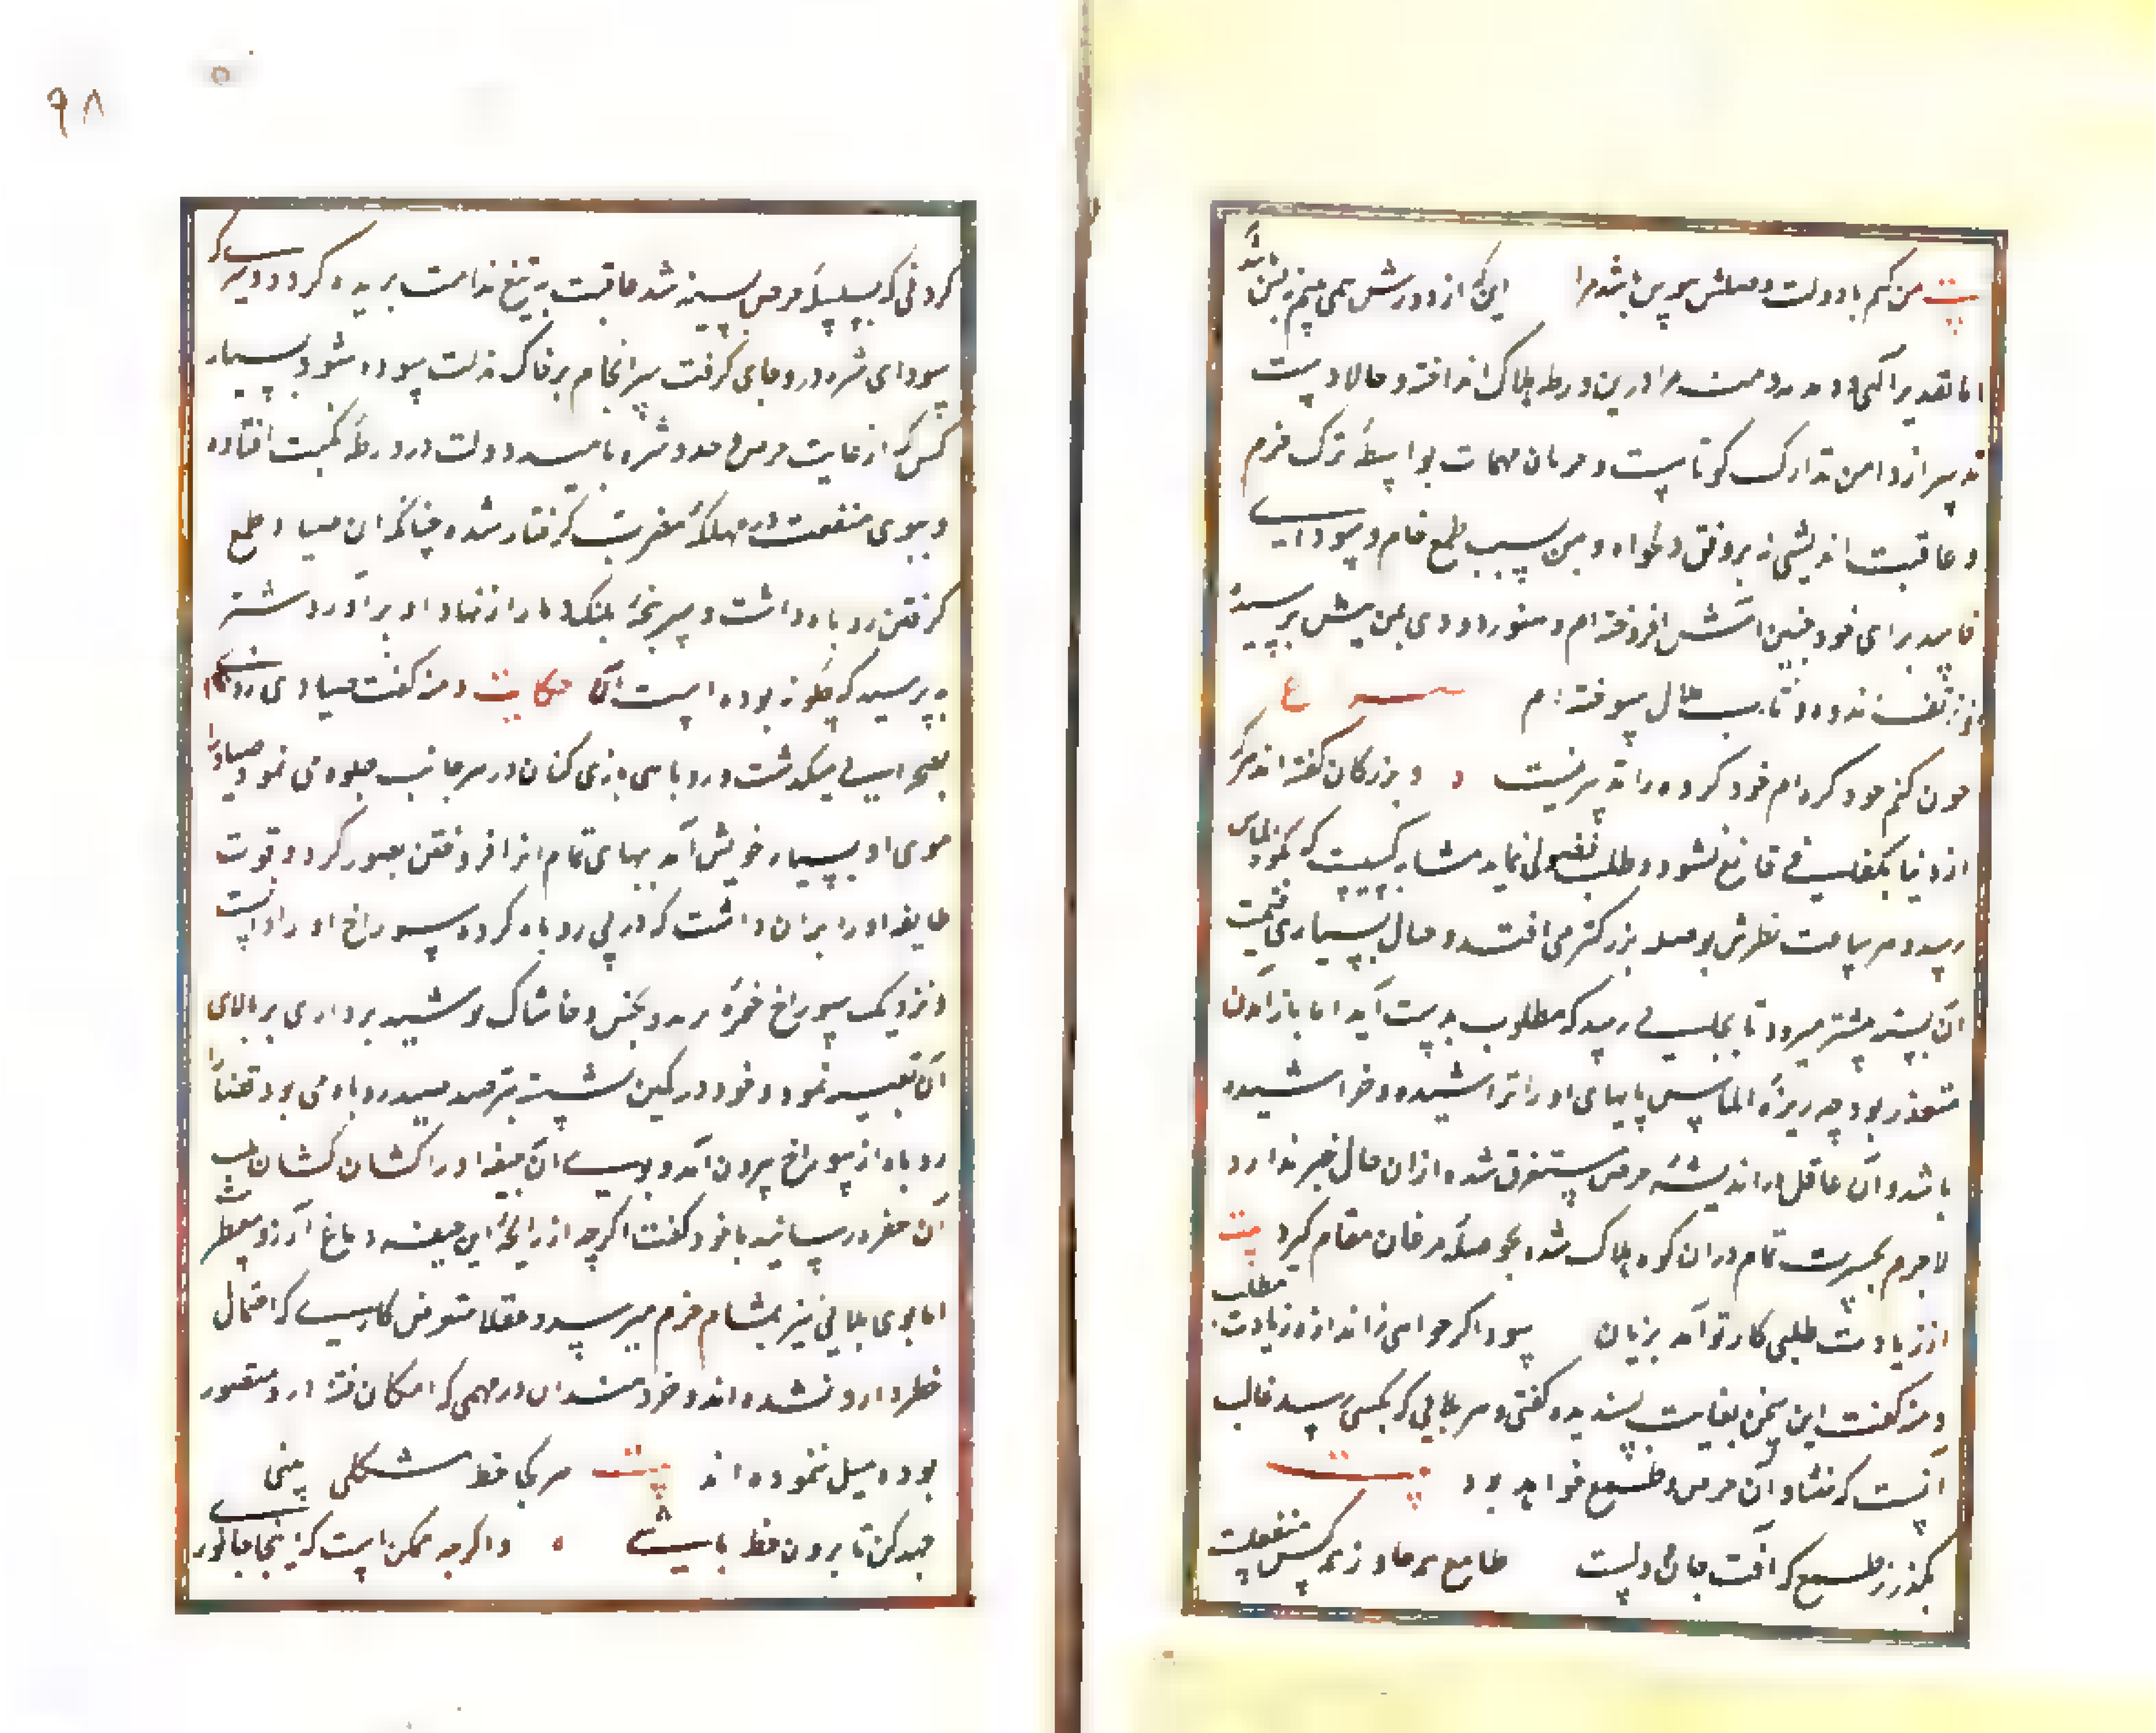 بیت من کیم با دولت وصلش هوس باشد مرا اینکه از دورش همی بینم نه بس باشد
اما تقدیر آلهی و مدد دمنه مرا درین ورطه هلاک انداخته و حالا دست
تدبیر از دامن تدارک کوتاهست و درمان مهمات بواسطهٔ ترک حزم
و عاقبت اندیشی نه بر وفق دلخواه و من بسبب طمع خام و سودای
فاسد برای خود چنین آتشی افروخته‌ام و هنوز دودی بمن بیش نرسیده
از تف اندوه و تاب ملال سوخته‌ام مصرع
چون کنم خود کرده‌ام خود کرده را تدبیر نیست و بزرگان گفته‌اند هرکه
از دنیا بکفافی قانع نشود و طلب فضولی نماید مشابه کسیست که بکوه الماس
رسد و هر ساعت نظرش بر قطعه بزرگتر می افتد و خیال بسیاری قیمت
آن بسته پیشتر میرود تا بجایی رسد که مطلوب بدست آید اما باز آمدن
متعذر بود چه ریزهٔ الماس پایهای او را تراشیده و خراشیده
باشد و آن غافل در اندیشهٔ حرص مستغرق شده از آن حال خبر ندارد
لاجرم بحسرت تمام در آن کوه هلاک شده بحوصلهٔ مرغان مقام گیرد بیت
از زیادت طلبی کار تو آمد بزیان سود اگر خواهی از اندازه زیادت مطلب
دمنه گفت این سخن بغایت پسندیده گفتی و هر بلایی که بکسی رسد غالب
آنست که منشاء آن حرص و طمع خواهد بود بیت
بگذر ز طمع که آفت جان و دلست طامع همه جا و از همه کس منفعلست
گردنی که بسلسلهٔ حرص بسته شد عاقبت به تیغ ندامت بریده گردد و سری که
سودای شره درو جای گرفت سرانجام بر خاک مذلت سوده شود بسیار
کس که از غایت حرص و شره بامید دولت در ورطهٔ نکبت افتاده
و ببوی منفعت در مهلکهٔ مضرت گرفتار شده چنانکه این صیاد طمع
گرفتن روباه داشت و سر پنجهٔ پلنگ دمار از نهاد او برآورد شتربه
پرسید که چگونه بوده است آن حکایت دمنه گفت صیادی روزی
بصحرایی میگذشت و روباهی بازی کنان در هر جانب جلوه می نمود صیاد را
موی او بسیار خوش آمد ببهای تمام او را فروختن تصور کرد و قوت
طامعه او را بران داشت که در پی روباه کرده سوراخ او را دانست
و نزدیک سوراخ حفرهٔ برید و بخس و خاشاک پوشید مرداری بر بالای
آن تعبیه نمود و خود در کمین نشسته مترصد صید روباه می بود قضا را
روباه از سوراخ بیرون آمد و بوی آن جیفه او را کشان کشان بلب
آن حفره رسانید با خود گفت اگرچه از رایحهٔ این جیفه دماغ آرزو معطر شد
اما بوی بلایی نیز بمشام حزم میرسد و عقلا متعرض کاری که احتمال
خطر دارد نشده‌اند و خردمندان در مهمی که امکان فتنه در و متصور
بوده میل ننموده‌اند بیت هر کجا خط مشکلی بینی
جهد کن تا برون خط باشی و اگرچه ممکن است که اینجا جانور
۹۸